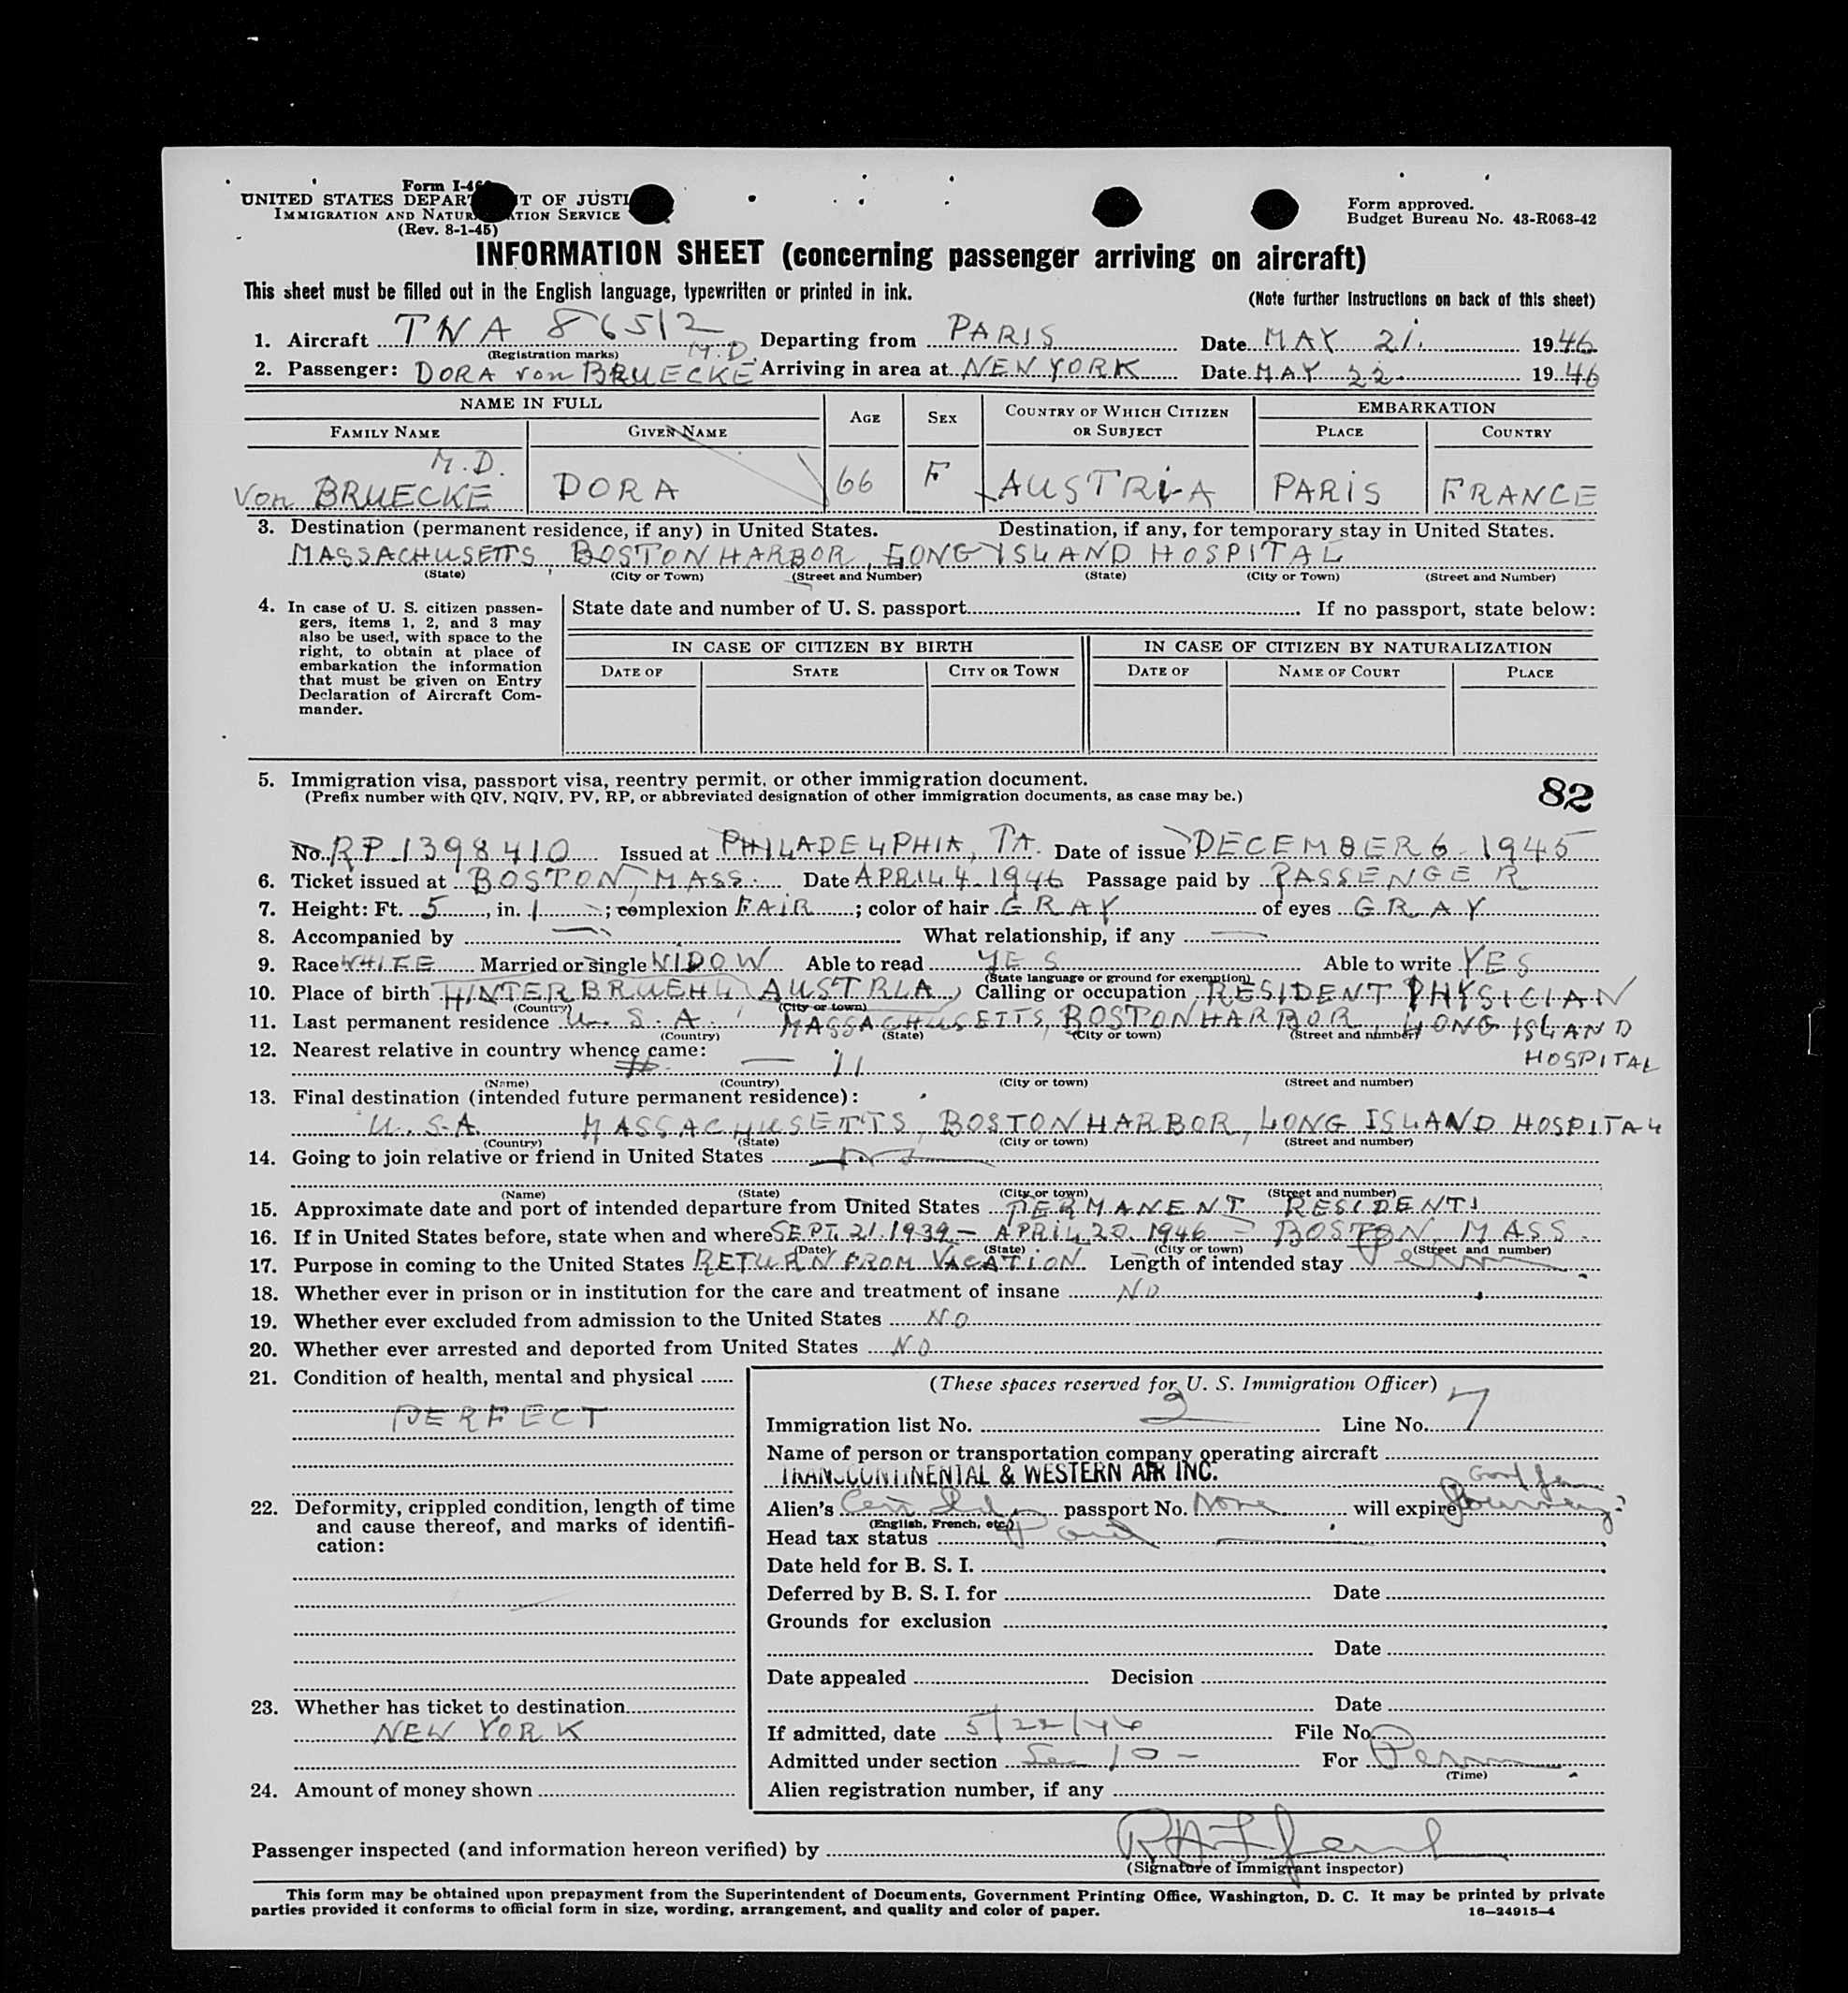 Form I-4
UNITED STATES DEPAR T OF JUSTI
IMMIGRATION AND NATUR TION SERVICE
(Rev. 8-1-45)
Form approved.
Budget Bureau No. 43-R063-42
INFORMATION SHEET (concerning passenger arriving on aircraft)
This sheet must be filled out in the English language, typewritten or printed in ink.
(Note further instructions on back of this sheet)
1. Aircraft TNA 86512 Departing from PARIS Date MAY 21. 1946
(Registration marks) M.D.
2. Passenger: DORA von BRUECKE Arriving in area at NEW YORK Date MAY 22. 1946
NAME IN FULL AGE SEX COUNTRY OF WHICH CITIZEN OR SUBJECT EMBARKATION
FAMILY NAME GIVEN NAME PLACE COUNTRY
M.D.
von BRUECKE DORA 66 F AUSTRIA PARIS FRANCE
3. Destination (permanent residence, if any) in United States. Destination, if any, for temporary stay in United States.
MASSACHUSETTS, BOSTON HARBOR, LONG ISLAND HOSPITAL
(State) (City or Town) (Street and Number) (State) (City or Town) (Street and Number)
4. In case of U. S. citizen passen-
gers, items 1, 2, and 3 may
also be used, with space to the
right, to obtain at place of
embarkation the information
that must be given on Entry
Declaration of Aircraft Com-
mander.
State date and number of U. S. passport If no passport, state below:
IN CASE OF CITIZEN BY BIRTH IN CASE OF CITIZEN BY NATURALIZATION
DATE OF STATE CITY OR TOWN DATE OF NAME OF COURT PLACE
5. Immigration visa, passport visa, reentry permit, or other immigration document.
(Prefix number with QIV, NQIV, PV, RP, or abbreviated designation of other immigration documents, as case may be.)
82
No. RP 1398410 Issued at PHILADELPHIA, PA. Date of issue DECEMBER 6. 1945
6. Ticket issued at BOSTON, MASS. Date APRIL 4. 1946 Passage paid by PASSENGER
7. Height: Ft. 5, in. 1; complexion FAIR; color of hair GRAY of eyes GRAY
8. Accompanied by — What relationship, if any —
9. Race WHITE Married or single WIDOW Able to read YES Able to write YES
(State language or ground for exemption)
10. Place of birth HINTERBRUEHL, AUSTRIA, Calling or occupation RESIDENT PHYSICIAN
(Country) (City or town)
11. Last permanent residence U.S.A. MASSACHUSETTS, BOSTON HARBOR, LONG ISLAND
(Country) (State) (City or town) (Street and number)
HOSPITAL
12. Nearest relative in country whence came:
(Name) (Country) (City or town) (Street and number)
13. Final destination (intended future permanent residence):
U.S.A. MASSACHUSETTS, BOSTON HARBOR, LONG ISLAND HOSPITAL
(Country) (State) (City or town) (Street and number)
14. Going to join relative or friend in United States
(Name) (State) (City or town) (Street and number)
15. Approximate date and port of intended departure from United States PERMANENT RESIDENT!
16. If in United States before, state when and where SEPT. 21. 1939 - APRIL 20. 1946 - BOSTON MASS.
(Date) (State) (City or town) (Street and number)
17. Purpose in coming to the United States RETURN FROM VACATION. Length of intended stay Perm
18. Whether ever in prison or in institution for the care and treatment of insane NO
19. Whether ever excluded from admission to the United States NO
20. Whether ever arrested and deported from United States NO
21. Condition of health, mental and physical
PERFECT
22. Deformity, crippled condition, length of time
and cause thereof, and marks of identifi-
cation:
23. Whether has ticket to destination
NEW YORK
24. Amount of money shown
(These spaces reserved for U. S. Immigration Officer)
Immigration list No. 2 Line No. 7
Name of person or transportation company operating aircraft
TRANSCONTINENTAL & WESTERN AIR INC.
Alien's passport No. None will expire Journey
(English, French, etc.)
Head tax status Paid
Date held for B. S. I.
Deferred by B. S. I. for Date
Grounds for exclusion
Date
Date appealed Decision
Date
If admitted, date 5/22/46 File No.
Admitted under section Sec 10 - For Perm
(Time)
Alien registration number, if any
Passenger inspected (and information hereon verified) by
(Signature of Immigrant inspector)
This form may be obtained upon prepayment from the Superintendent of Documents, Government Printing Office, Washington, D. C. It may be printed by private
parties provided it conforms to official form in size, wording, arrangement, and quality and color of paper.
16—24915-4